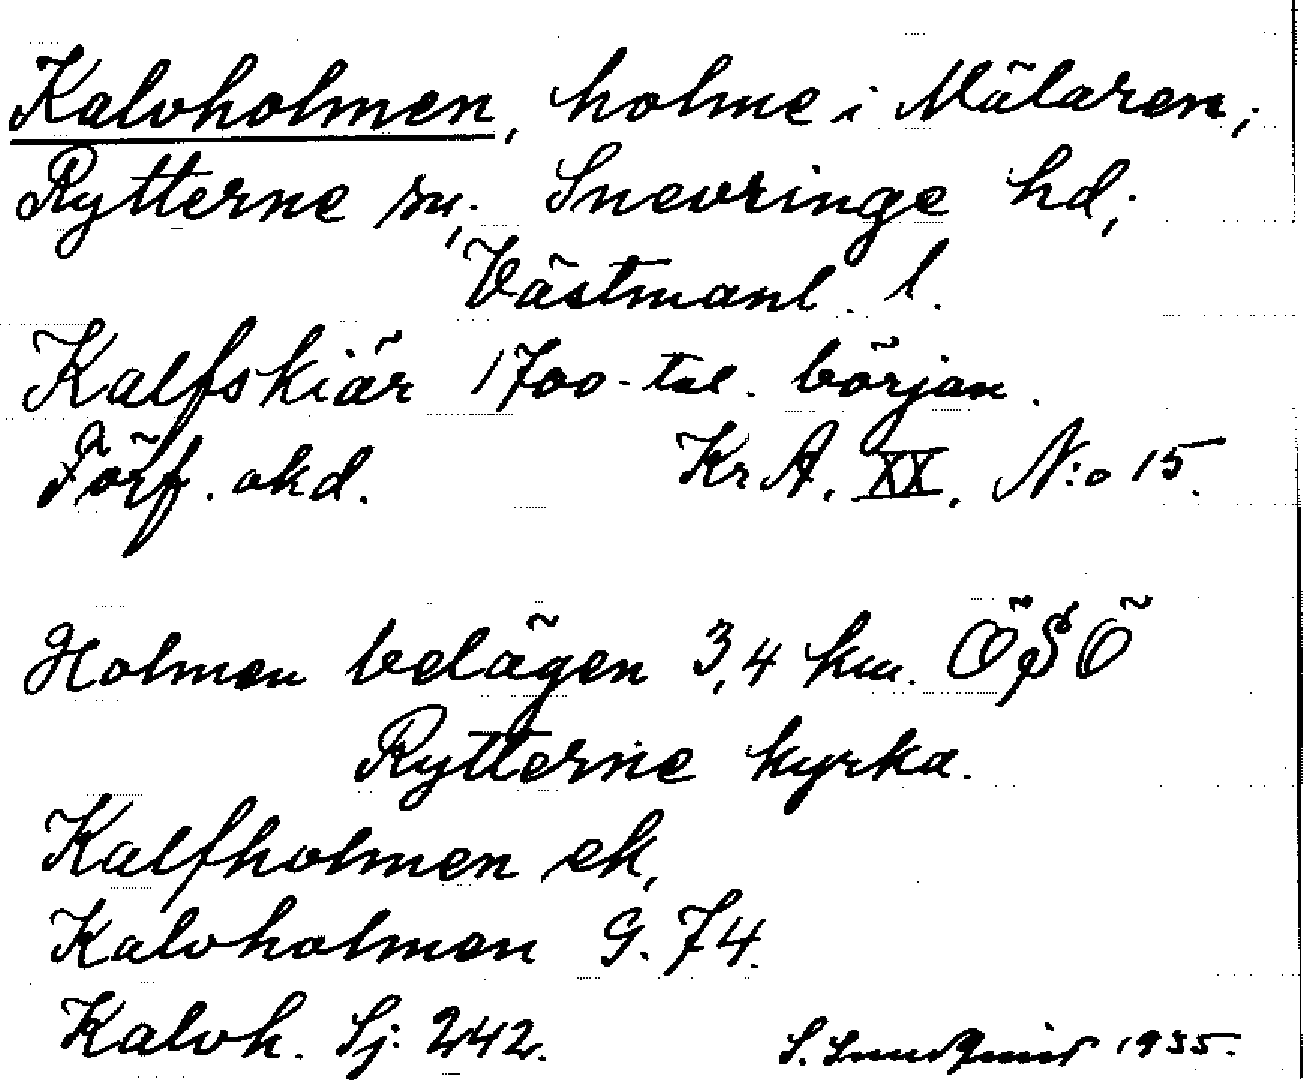 Kalvholmen, holme i Mälaren;
Rytterne sn; Snevringe hd;
Västmanl. l.
Kalfskiär 1700-tal. början.
Förf. okd. Kr A. XX. N:o 15.
Holmen belägen 3,4 km. ÖSÖ
Rytterne kyrka.
Kalfholmen ek,
Kalvholmen G. 74.
Kalvh. Sj: 242.
S. 1935.